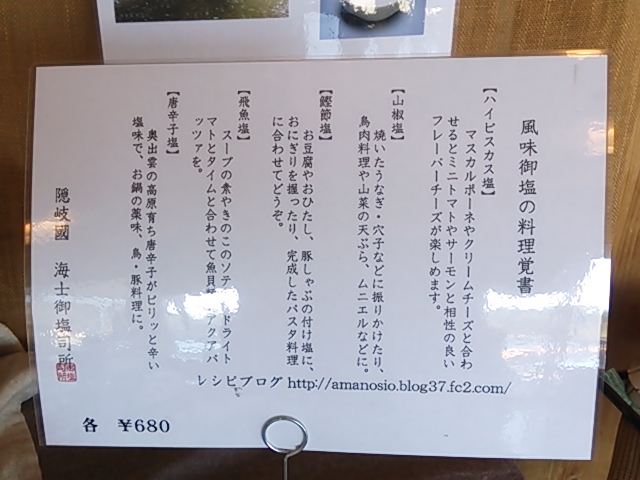 風味御塩の料理覚書
【ハイビスカス塩】
マスカルポーネやクリームチーズと合わ
せるとミニトマトやサーモンと相性の良い
フレーバーチーズが楽しめます。
【山椒塩】
焼いたうなぎ・穴子などに振りかけたり、
鳥肉料理や山菜の天ぷら、ムニエルなどに。
【鰹節塩】
お豆腐やおひたし、豚しゃぶの付け塩に、
おにぎりを握ったり、完成したパスタ料理
に合わせてどうぞ。
【飛魚塩】
スープの素やきのこのソテー、ドライト
マトとタイムと合わせて魚貝類のアクアパ
ッツァを。
【唐辛子塩】
奥出雲の高原育ち唐辛子がピリッと辛い
塩味で、お鍋の薬味、鳥・豚料理に。
隠岐國 海士御塩司所
レシピブログ http://amanosio.blog37.fc2.com/
各 ¥680